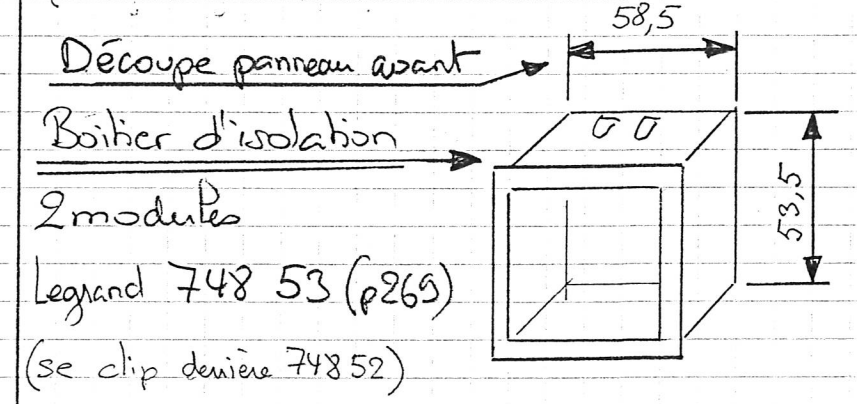 58,5
Découpe panneau avant
Boîtier d'isolation
53,5
2 modules
Legrand 748 53 (p269)
(se clip derrière 74852)